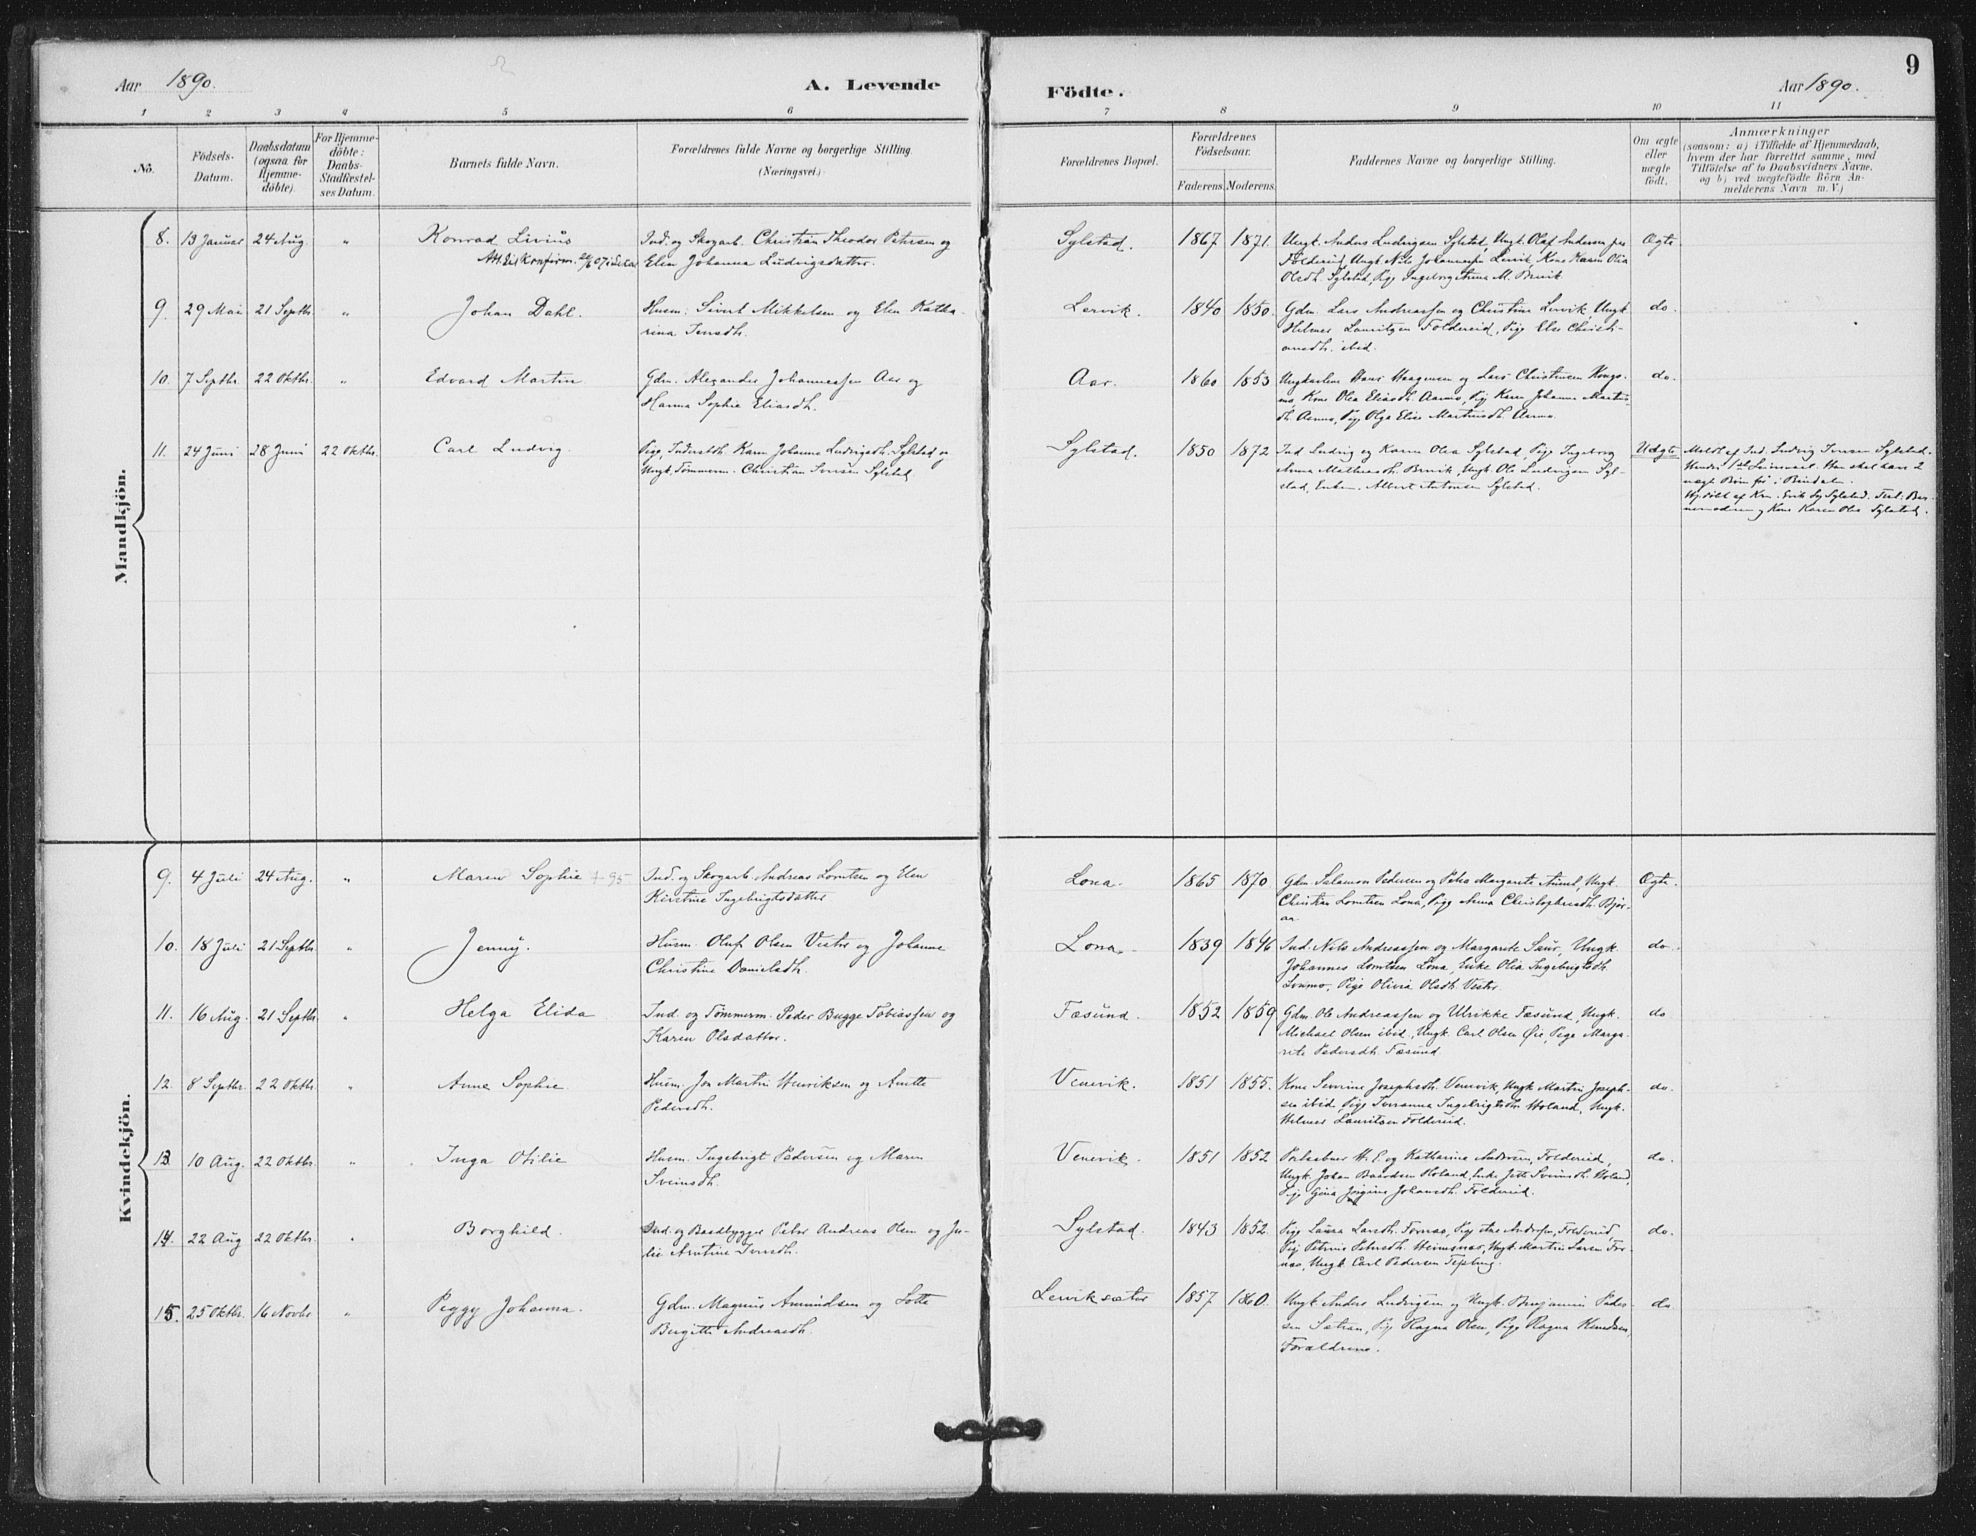 Aar 1890.
A. Levende
Födte.
Aar 1890.
9
1 2 3 4 5 6 7 8 9 10 11
No.
Födsels-
Datum.
Daabsdatum
(ogsaa for
Hjemme-
döbte).
For Hjemme-
döbte:
Daabs-
Stadfæstel-
ses Datum.
Barnets fulde Navn.
Forældrenes fulde Navne og borgerlige Stilling
(Næringsvei.)
Forældrenes Bopæl.
Forældrenes
Födselsaar.
Faderens. Moderens.
Faddernes Navne og borgerlige Stilling.
Om ægte
eller
uægte
födt.
Anmærkninger
(saasom: a) i Tilfælde af Hjemmedaab,
hvem der har forrettet samme, med
Tilföielse af to Daabsvidners Navne,
og b) ved uægtefödte Börn An-
melderens Navn m. V.)
Mandkjön.
8. 13 Januar 24 Aug. " Konrad Livius Ind. og Skogarb. Christian Theodor Petersen og Sylstad. 1867 1871. Ungk. Anders Ludvigsen Sylstad, Ungk. Olaf Andersen Ægte
Elen Johanna Ludvigsdatter. Foldereid, Ungk. Nils Johannessen Lervik, Kone Karen Olia
Olsdh. Sylstad, Pige Ingeborg Anna M. Brevik
9. 29 Mai 21 Septbr. " Johan Dahl. Husm. Sivert Mikkelsen og Elen Katha- Lervik. 1840 1850. Gdm. Lars Andreassen og Christine Lervik, Ungk. do.
rina Iversdh. Helmer Lauritzen Foldereid, Pige Else Christi-
ansdh. ibid.
10. 7 Septbr. 22 Oktbr. " Edvard Martin Gdm. Alexander Johannessen Aar og Aar. 1860 1853 Ungkarlene Hans Haagensen og Lars Christensen do.
Hanna Sophie Eliasdh. Kone Olea Eliasdh. Aarmo, Pige Karen Johanna Martins-
dh. Aarmo, Pige Olga Elise Martinsdh. Aarmo.
11. 24 Juni 28 Juni 22 Oktbr. Carl Ludvig. Pige, Inderstdh. Karen Johanne Ludvigsdh. Sylstad og Sylstad. 1850 1872 Ind. Ludvig og Karen Olea Sylstad, Pige Ingeborg Uægte Meldt af Ind. Ludvig Iversen Sylstad.
Ungk. Tömmerm. Christian Iversen Sylstad Anna Matheasdh. Brevik, Ungk. Ole Ludvigsen Syl- Moders 1ste Leiermaal. Han skal have 2
stad, Enkem. Albert Antonsen Sylstad. uægt. Börn før i Bindalen.
Hj. döbt af Kone Sylstad. Test. Bar-
nemoderen og Kone Karen Olea Sylstad.
Kvindekjön.
9. 4 Juli 24 Aug. " Maren Sophie + 95 Ind. og Skogarb. Andreas Lorntsen og Elen Lona. 1865 1870 Gdm. Salamon Pedersen og Petra Margarete Aunet, Ungk. Ægte.
Kirstine Ingebrigtsdatter Christian Lorntsen Lona, Pige Anna Christophersdh. Bjør-
aa.
10. 18 Juli 21 Septbr. " Jenny. Husm. Oluf Olsen Vester og Johanne Lona 1839 1846 Ind. Nils Andreassen og Margarete Saur, Ungk. do.
Christine Danielsdh. Johannes Lorntsen Lona, Enke Olia Ingebrigtsdh.
Lonmo, Pige Olivia Olsdh. Vester.
11. 16 Aug. 21 Septbr. " Helga Elida Ind. og Tömmerm. Peder Bugge Tobiassen og Fæsund. 1852 1859 Gdm. Ole Andreassen og Ulrikke Fæsund, Ungk. do
Karen Olsdatter. Michael Olsen ibid, Ungk. Carl Olsen Øie, Pige Marga-
rete Pedersdh. Fæsund.
12. 8 Septbr. 22 Oktbr. " Anne Sophie Husm. Jon Martin Henriksen og Anette Venevik. 1851 1855. Kone Severine Josephsdh. Venevik, Ungk. Martin Joseph- do.
Pedersdh. sen ibid, Pige Ingebrigtsdh. Holand, Ungk.
Helmer Lauritsen Foldereid.
13. 10 Aug. 22 Oktbr. " Inga Otilie Husm. Ingebrigt Pedersen og Maren Venevik. 1851 1852 H. P. og Katharina Andersen, Foldereid, do.
Sveinsdh. Ungk. Johan Baardsen Holand, Enke Jette Sveinsdh. Holand,
Pige Gina Jörgine Johansdh. Foldereid.
14. 22 Aug 22 Oktbr. " Borghild. Ind. og Baadbygger Peter Andreas Olsen og Ju- Sylstad. 1843 1852. Pige Laura Larsdh. Pige Andersen, Foldereid do.
lie Iversdh. Pige Petrine Petersdh. Heimsnæs, Ungk. Martin Larsen For-
næs, Ungk. Carl Pedersen
15. 25 Oktbr. 16 Novbr " Peggy Johanna. Gdm. Magnus Amundsen og Lotte Lerviksæter 1857 1860. Ungk. Anders Ludvigsen og Ungk. Benjamin Peder- do
Birgitte Andreasdh. sen Sætran, Pige Ragna Olsen, Pige Ragna Knudsen,
Forældrene.